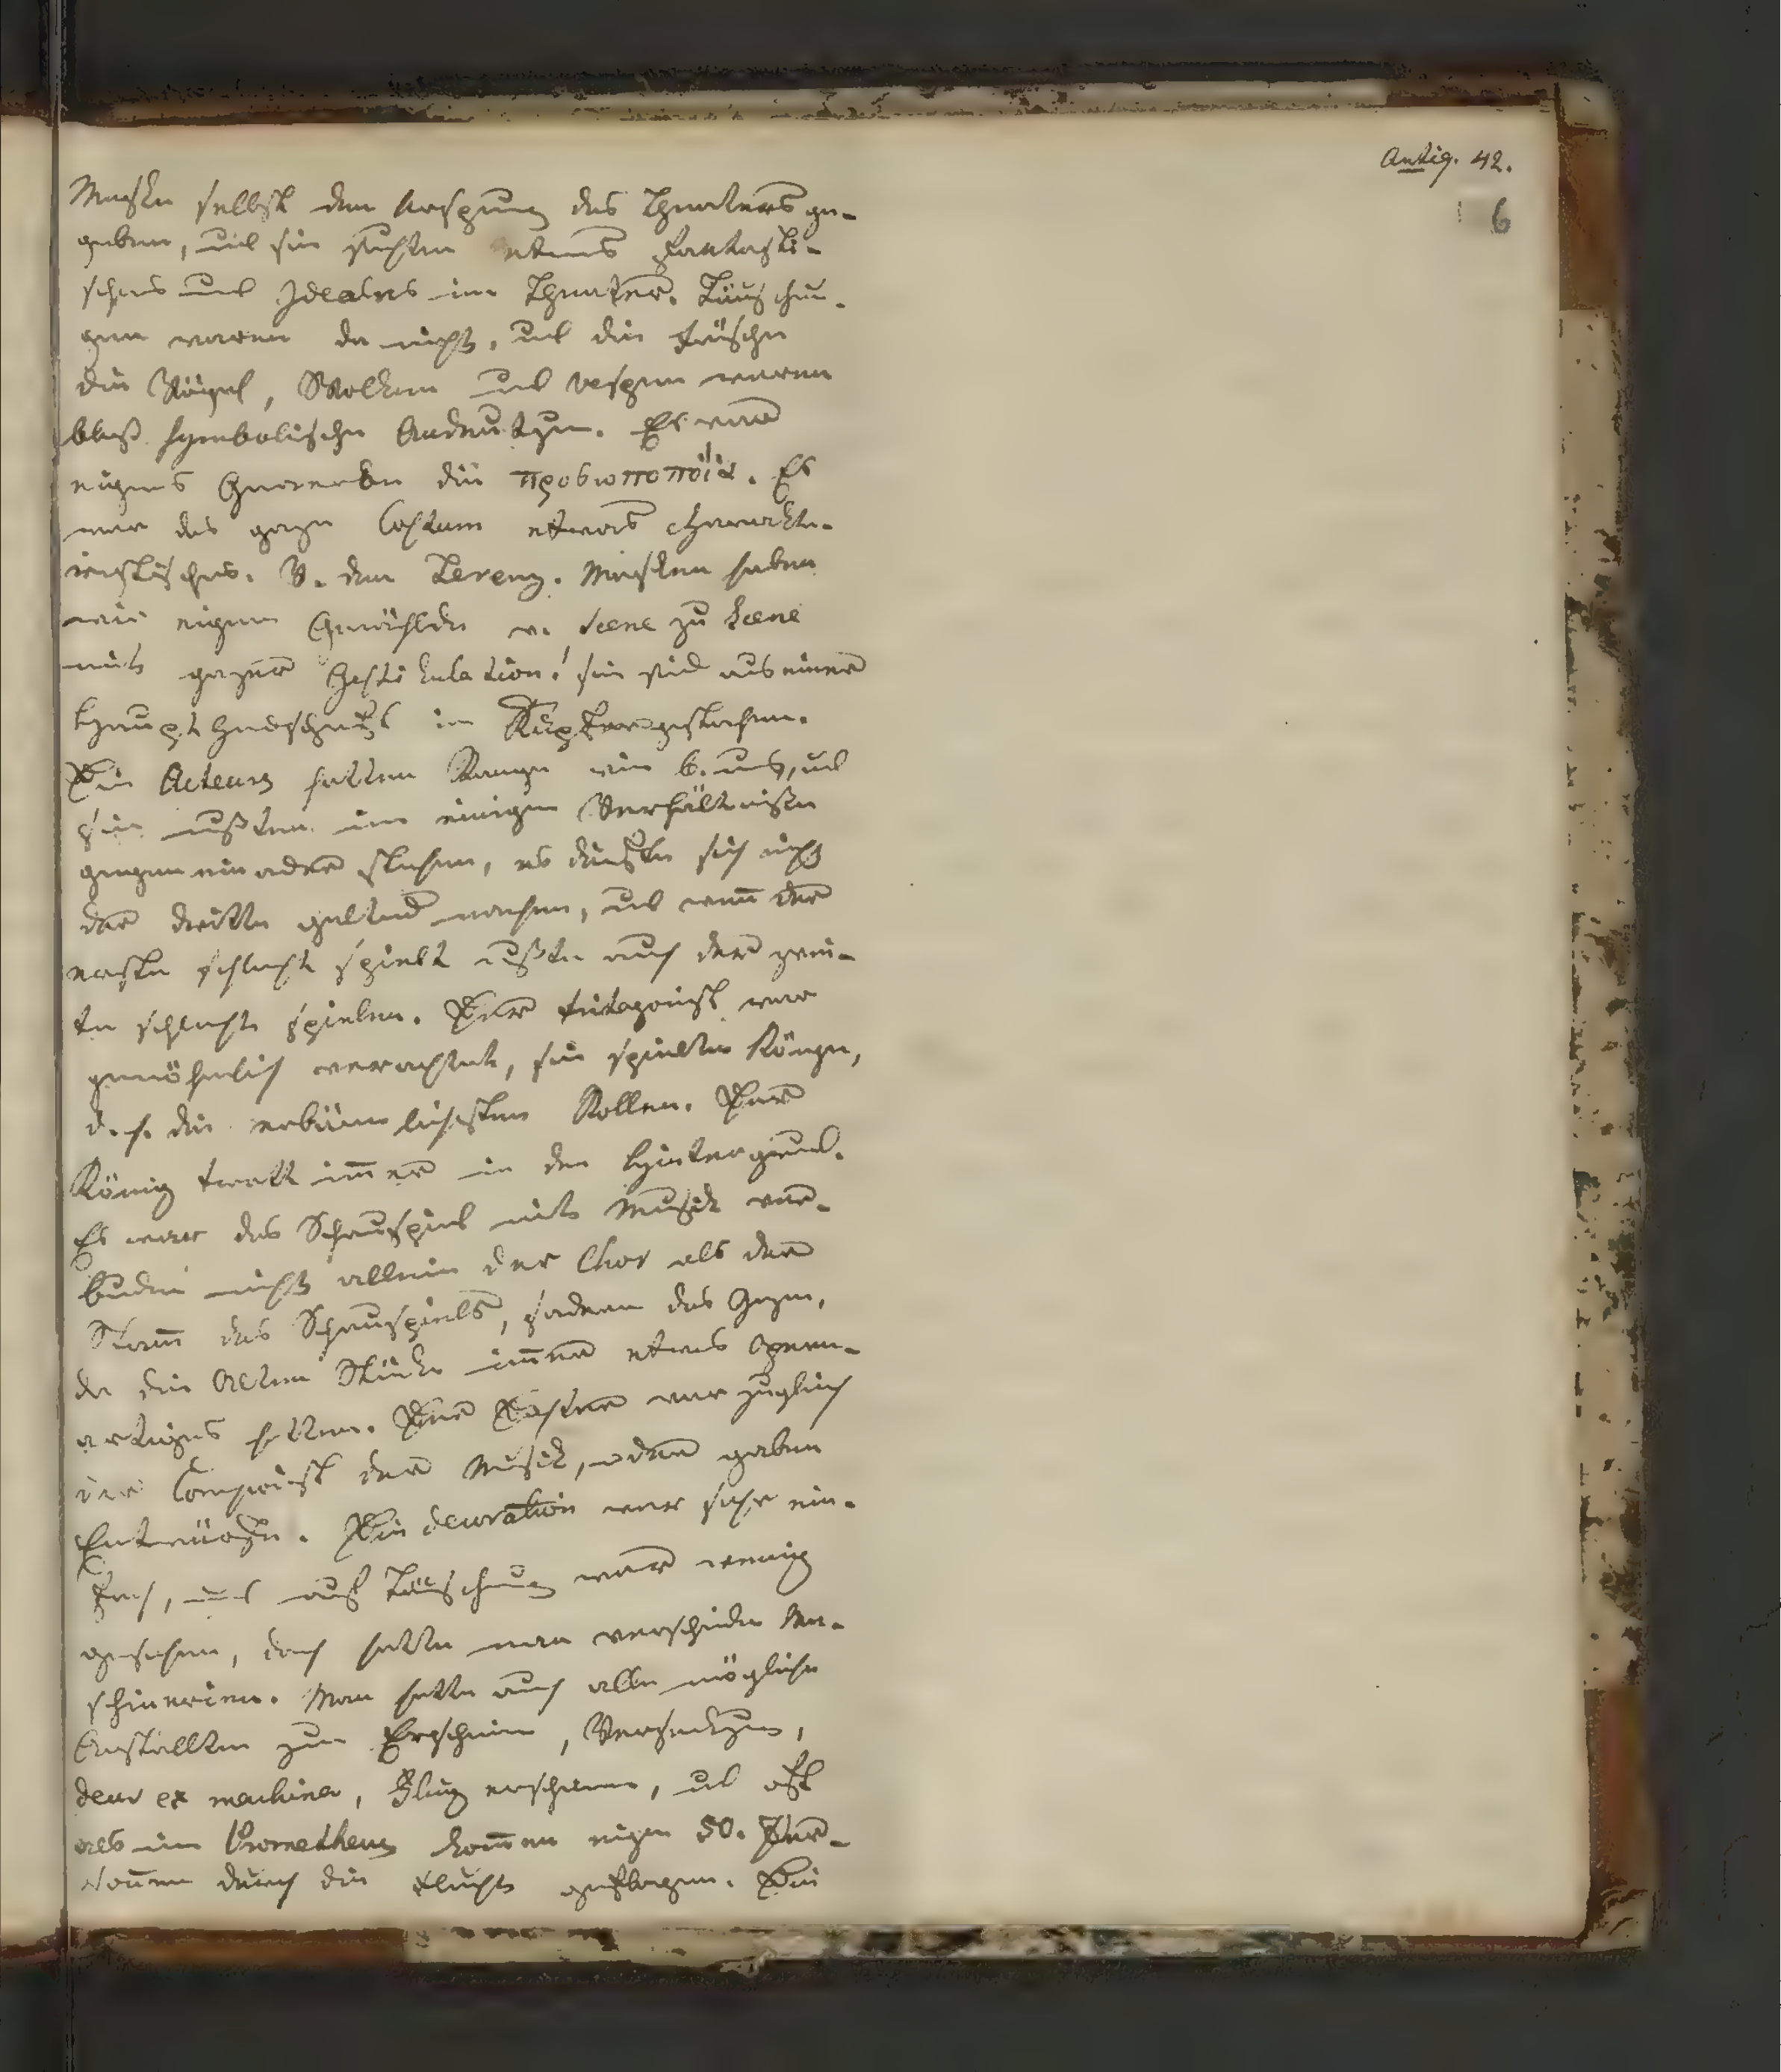 Antiq. 42.
6
Maske selbst den Ursprung des Theaters ge-
geben, und sie suchten etwas Fantasti-
sches und Ideales im Theater. Täuschun-
gen waren da nicht, und die Frösche
die Vögel, Wolken und Vespen waren
bloß symbolische Andeutgen. Es war
eignes Gewerbe die προσωποποιΐα. Es
war das ganze Costum etwas charackte-
ristisches. V. dem Terenz. Masken haben
wir eigene Gemählde v. Scene zu Scene
mit ganzer Gestikulation; sie sind aus einer
Haupthandschrift in Kupfer gestochen.
Die Acteurs hatten Range wie b. uns, und
sie mußten im einigen Verhältnißen
gegen einander stehen, es dürfte sich nicht
der dritte geltend machen, und wenn der
erste schlecht spielt mußte auch der zwei-
te schlecht spielen. Der Tritagonist war
gewöhnlich verachtet, sie spielten Könge,
d. h. die erbärmlichsten Rollen. Der
König tratt im̅er in den Hintergrund.
Es war das Schauspiel mit Musik ver-
bunden nicht allein der Chor als der
Stam̅ des Schauspiels, sondern das Ganze,
da die Alten Stücke im̅er etwas Opern-
artiges hatten. Der Dichter war zugleich
der Componist der Musik, oder gaben
Entwürfe. Die decoration war sehr ein-
fach, und auf Täuschung war wenig
gesehen, doch hatte man verschiedene Ma-
schinerien. Man hatte auch alle mögliche
Anstallten zum Erscheinen, Versenkgen,
deus ex machina, Flug maschinen, und oft
als im Prometheus kom̅en eigen 50. Per-
sonen durch die Luft geflogen. Die